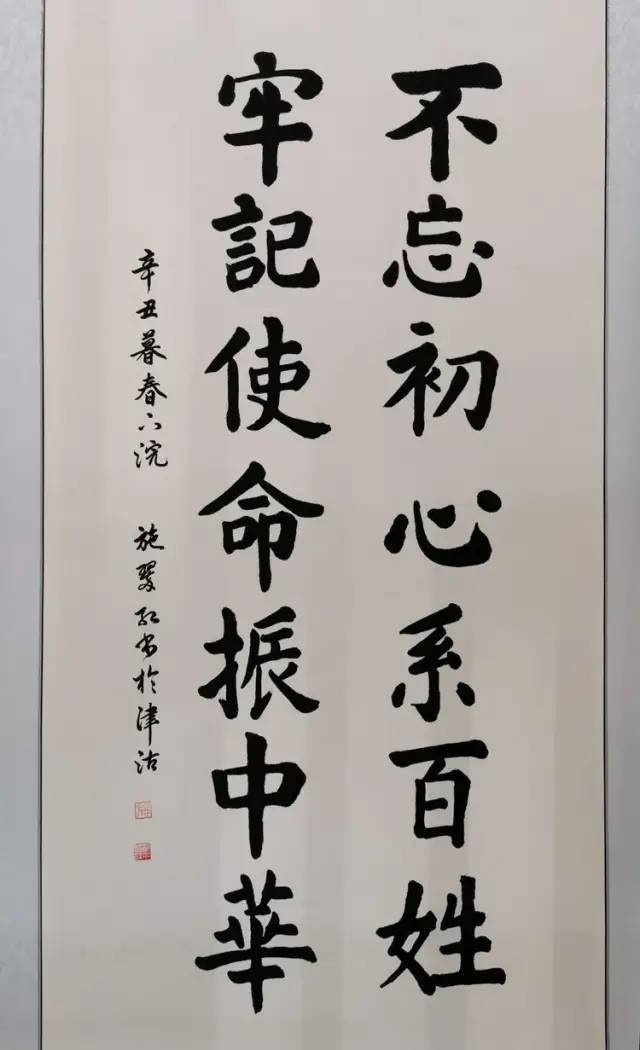 不忘初心系百姓
牢記使命振中華
辛丑暮春下浣 施翠红书於津沽